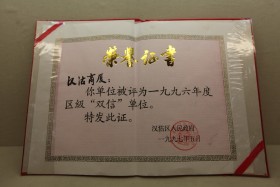 荣誉证书
汉沽商厦：
你单位被评为一九九六年度
区级“双信”单位。
特发此证。
汉沽区人民政府
一九九七年